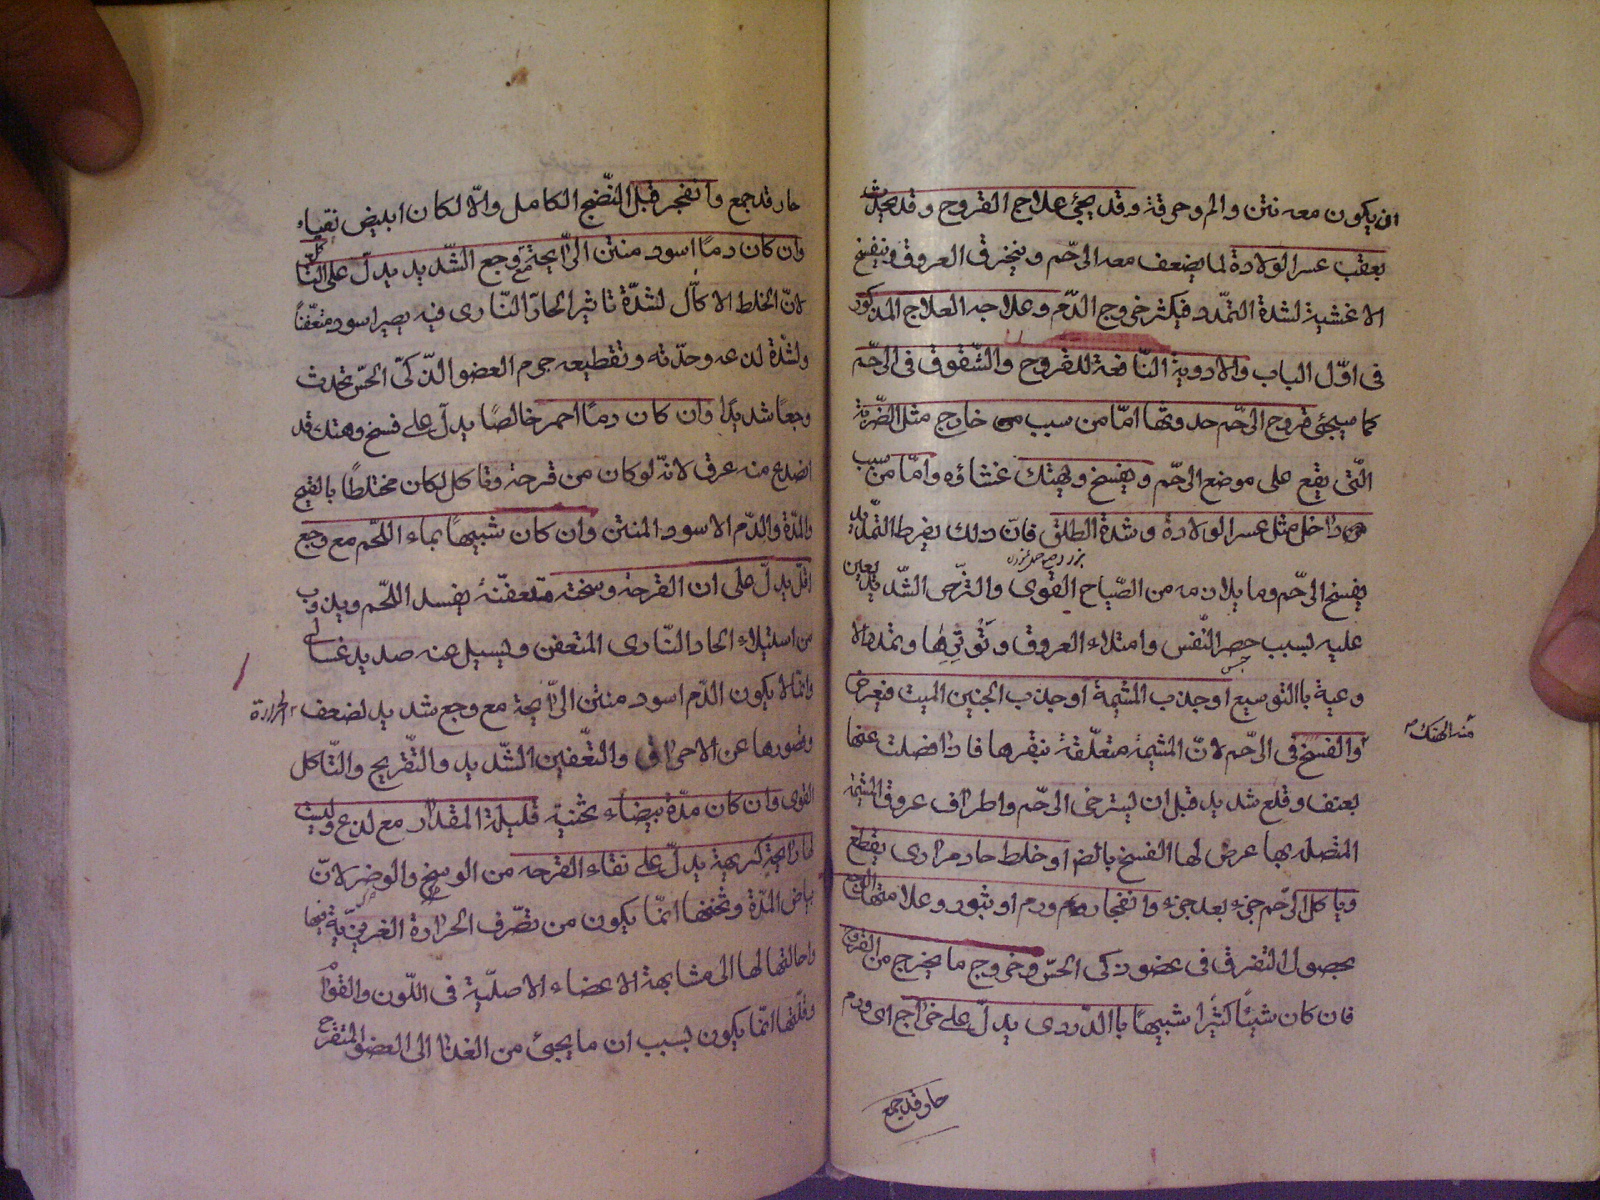 ان يكون معه نتن والم وحرقة وقد يجئ علاج القروح وقد يحدث
بعقب عسر الولادة لما يضعف معه الرّحم وينخرق العروق وينفسخ
الاغشية لشدة التمدد فيكثر خروج الدّم وعلاجه العلاج المذكور
فى اوّل الباب والادوية النّافعة للقروح والشّقوق فى الرّحم
كما سيجئ قروح الرّحم حدوثها امّا من سبب من خارج مثل الضّربة
الّتى يقع على موضع الرّحم ويفسخ ويهتك غشاؤه وامّا من سبب
من داخل مثل عسر الولادة وشدة الطلق فانّ ذلك يفرط التمديد
يفسخ الرّحم وما يلازمه من الصّياح القوى والتزحر الشّديد يعين
عليه بسبب حصر النّفس وامتلاء العروق وتوترها وتمدد الا
وعية باالتوسيع او جذب المشيمة او جذب الجنين الميت فيعرض
منه الهتك
والفسخ فى الرّحم لانّ المشيمة متعلّقة بنقرها فاذا فضلت عنها
بعنف وقلع شديد قبل ان يسترخى الرّحم واطراف عروق المشيمة
المتصله بها عرض لها الفسخ بالضر او خلط حار مرارى يقطع
وياكل الرّحم جزء بعد جزء وانفجار ورم او بثور وعلامتها الوجع
بحصول التفرق فى عضو ذكى الحسّ وخروج ما يخرج من القروح
فان كان شيئًا كثيرا شبيهًا باالدّردى يدلّ على خراج اى ورم
حار قد جمع
حار قد جمع وانفجر قبل النّضج الكامل والّا لكان ابيض نقياء
وان كان دمًا اسود منتن الرّايحة مع وجع الشّديد يدلّ على التاكل
لانّ الخلط الاكّال لشدّة تاثير الحارّ النّارى فيه يصير اسود متعفّنًا
ولشدة لذعه وحدّته وتقطيعه جرم العضو الذّكىّ الحسّ يحدث
وجعًا شديدًا وان كان دمًا احمر خالصًا يدلّ على فسخ وهتك قد
انصدع منه عرق لانّه لو كان من قرحة وتاكل لكان مختلطًا بالقيح
والمدّة والدّم الاسود المنتن وان كان شبيهًا بماء اللّحم مع وجع
اقلّ يدلّ على ان القرحة وسخة متعفنة يفسد اللّحم ويذوب
من استيلاء الحار النّارى المتعفن ويسيل عنه صديد غسالى
وانّما لا يكون الدّم اسود منتن الرّايحة مع وجع شديد لضعف الحرارة
وقصورها عن الاحراق والتعّفين الشّديد والتّقريح والتّاكل
القوى وان كان مدّة بيضاء ثخنية قليلة المقدار مع لذع وليست
لها رايحة كريهة يدلّ على نقاء القرحه من الوسخ والوضر لانّ
بياض المدّة وثخنها انّما يكون من تصّرف الحرارة الغريزيّة فيها
واحالتها لها الى مشابهة الاعضاء الاصليّة فى اللّون والقوام
وقلّتها انّما يكون بسبب ان ما يجئ من الغذا الى العضو المتقرح